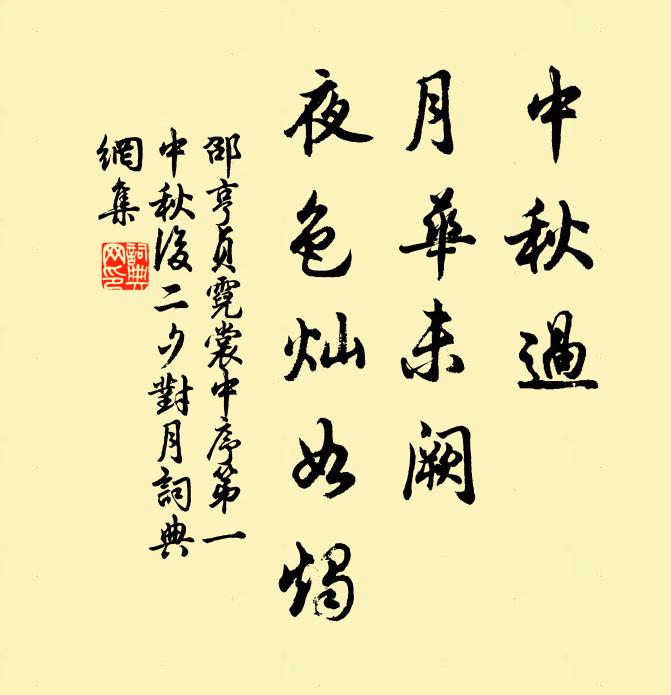 中秋過
月華未阙
夜色灿如燭
邵亨貞霓裳中序第一
中秋後二夕對月詞典
網集
詞典網印